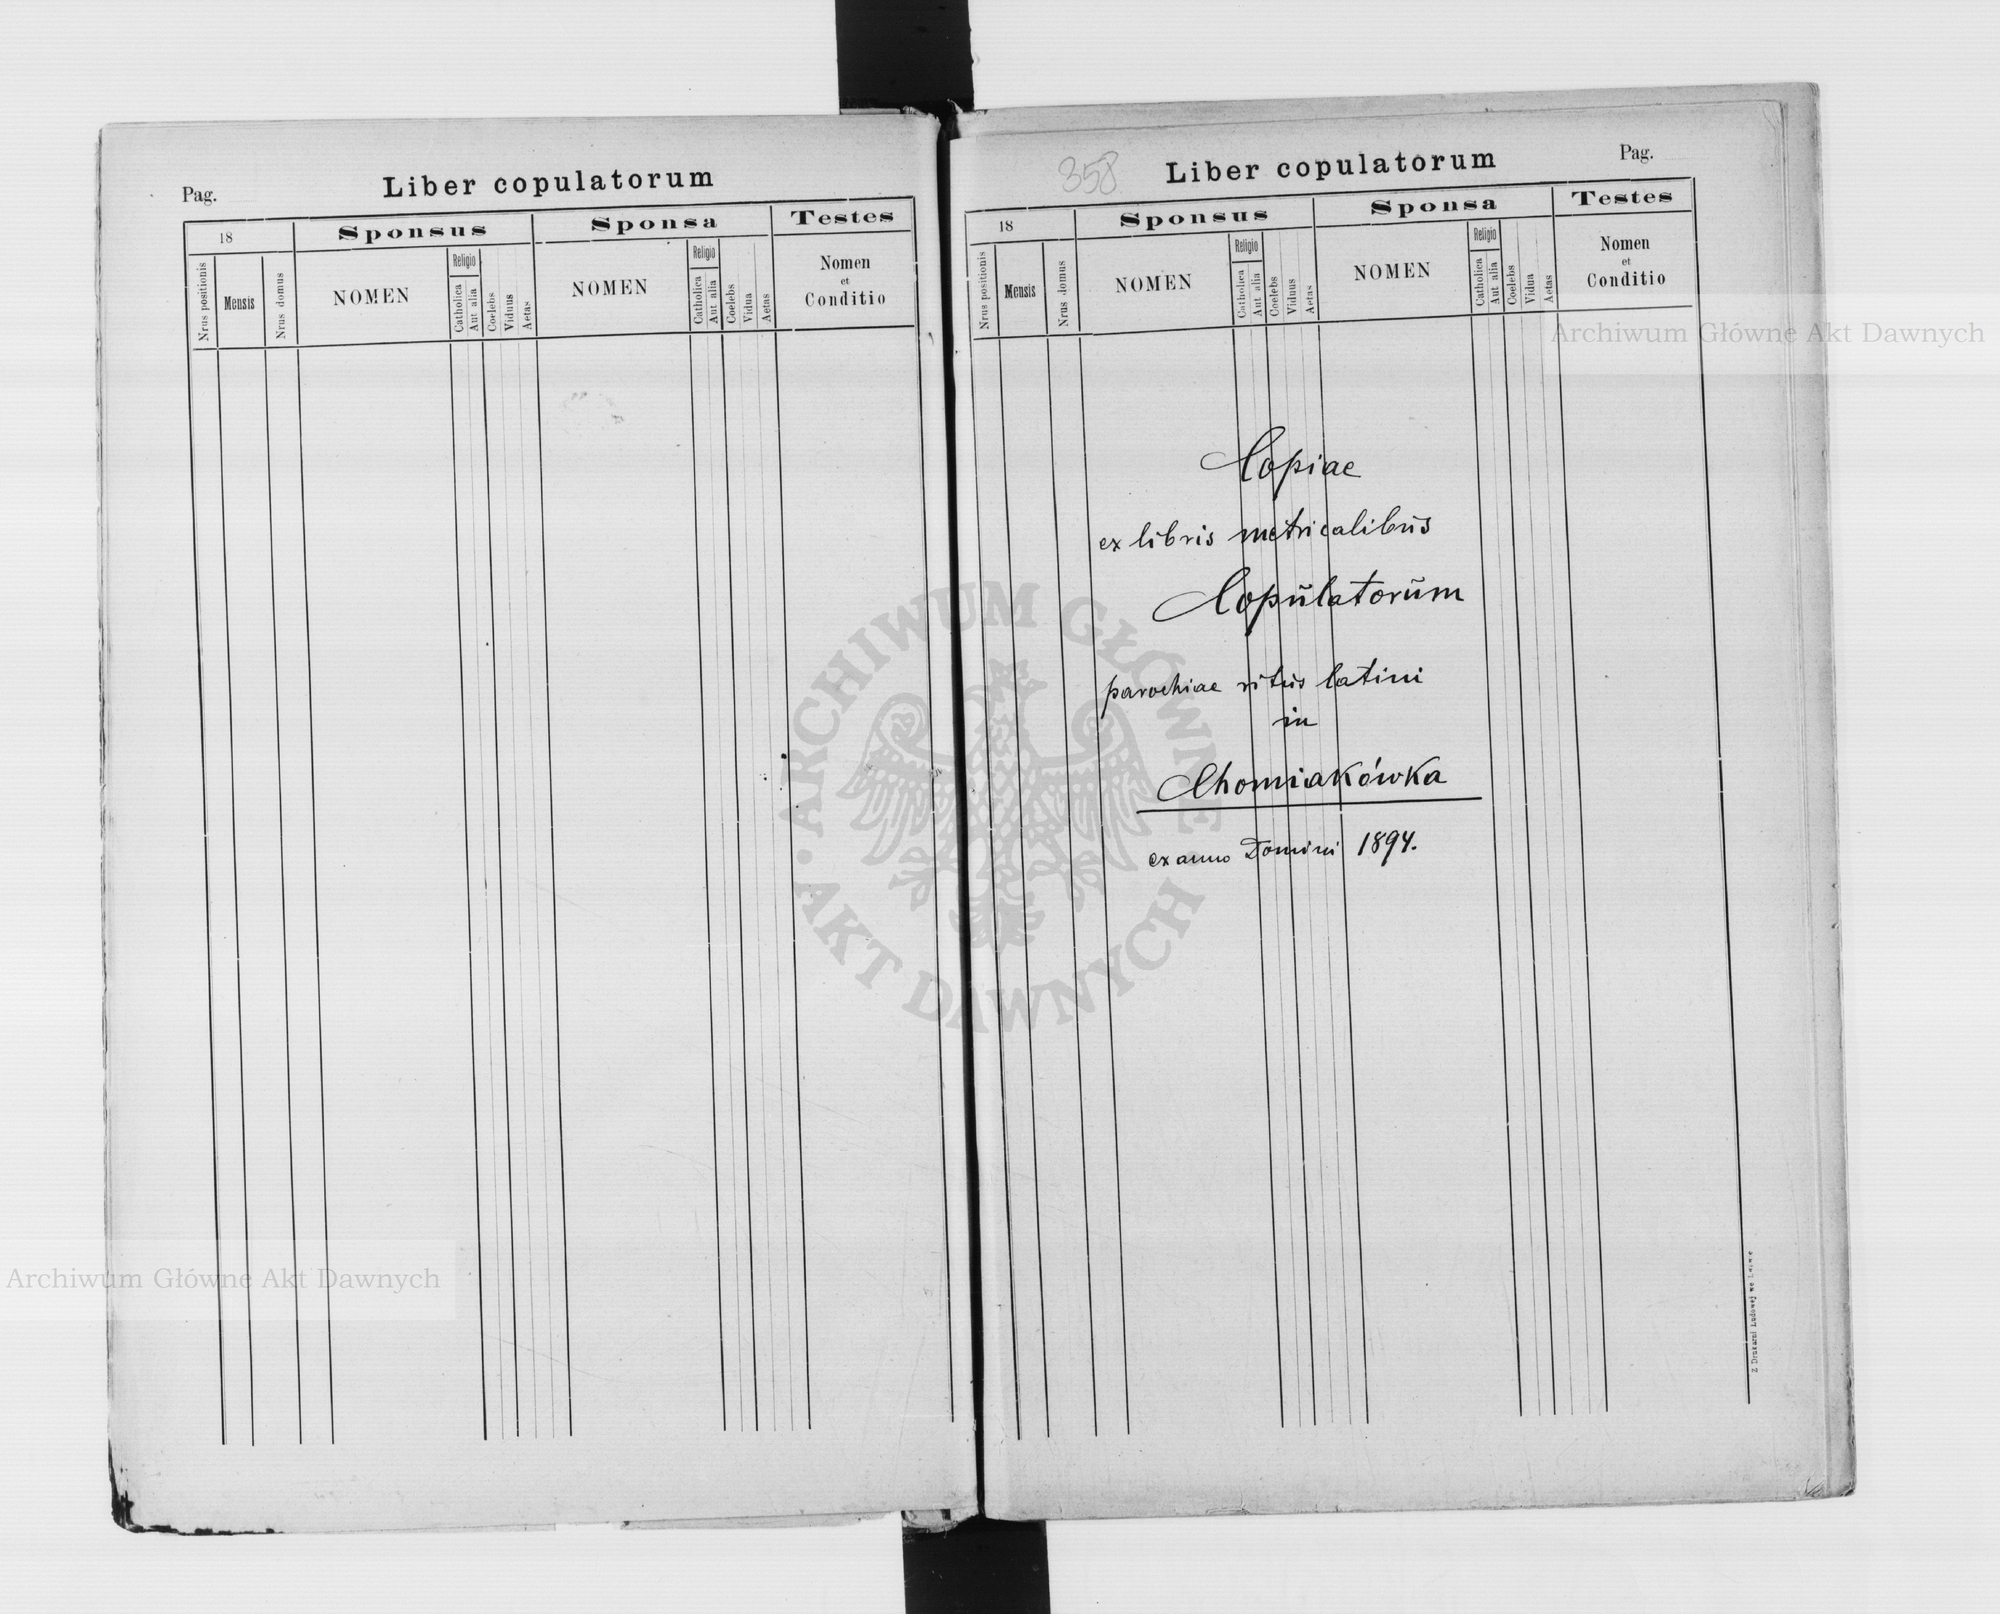 Pag.
Liber copulatorum
18
Sponsus
Sponsa
Testes
Nrus positionis
Mensis
Nrus domus
NOMEN
Religio
Catholica
Aut alia
Coelebs
Viduus
Aetas
NOMEN
Religio
Catholica
Aut alia
Coelebs
Vidua
Aetas
Nomen
et
Conditio
358
Liber copulatorum
Pag.
18
Sponsus
Sponsa
Testes
Nrus positionis
Mensis
Nrus domus
NOMEN
Religio
Catholica
Aut alia
Coelebs
Viduus
Aetas
NOMEN
Religio
Catholica
Aut alia
Coelebs
Vidua
Aetas
Nomen
et
Conditio
Copiae
ex libris metricalibus
Copulatorum
parochiae ritus latini
in
Chomiakówka
ex anno Domini 1894.
Z Drukarni Ludowej we Lwowie
Archiwum Główne Akt Dawnych
ARCHIWUM GŁÓWNE
AKT DAWNYCH
Archiwum Główne Akt Dawnych